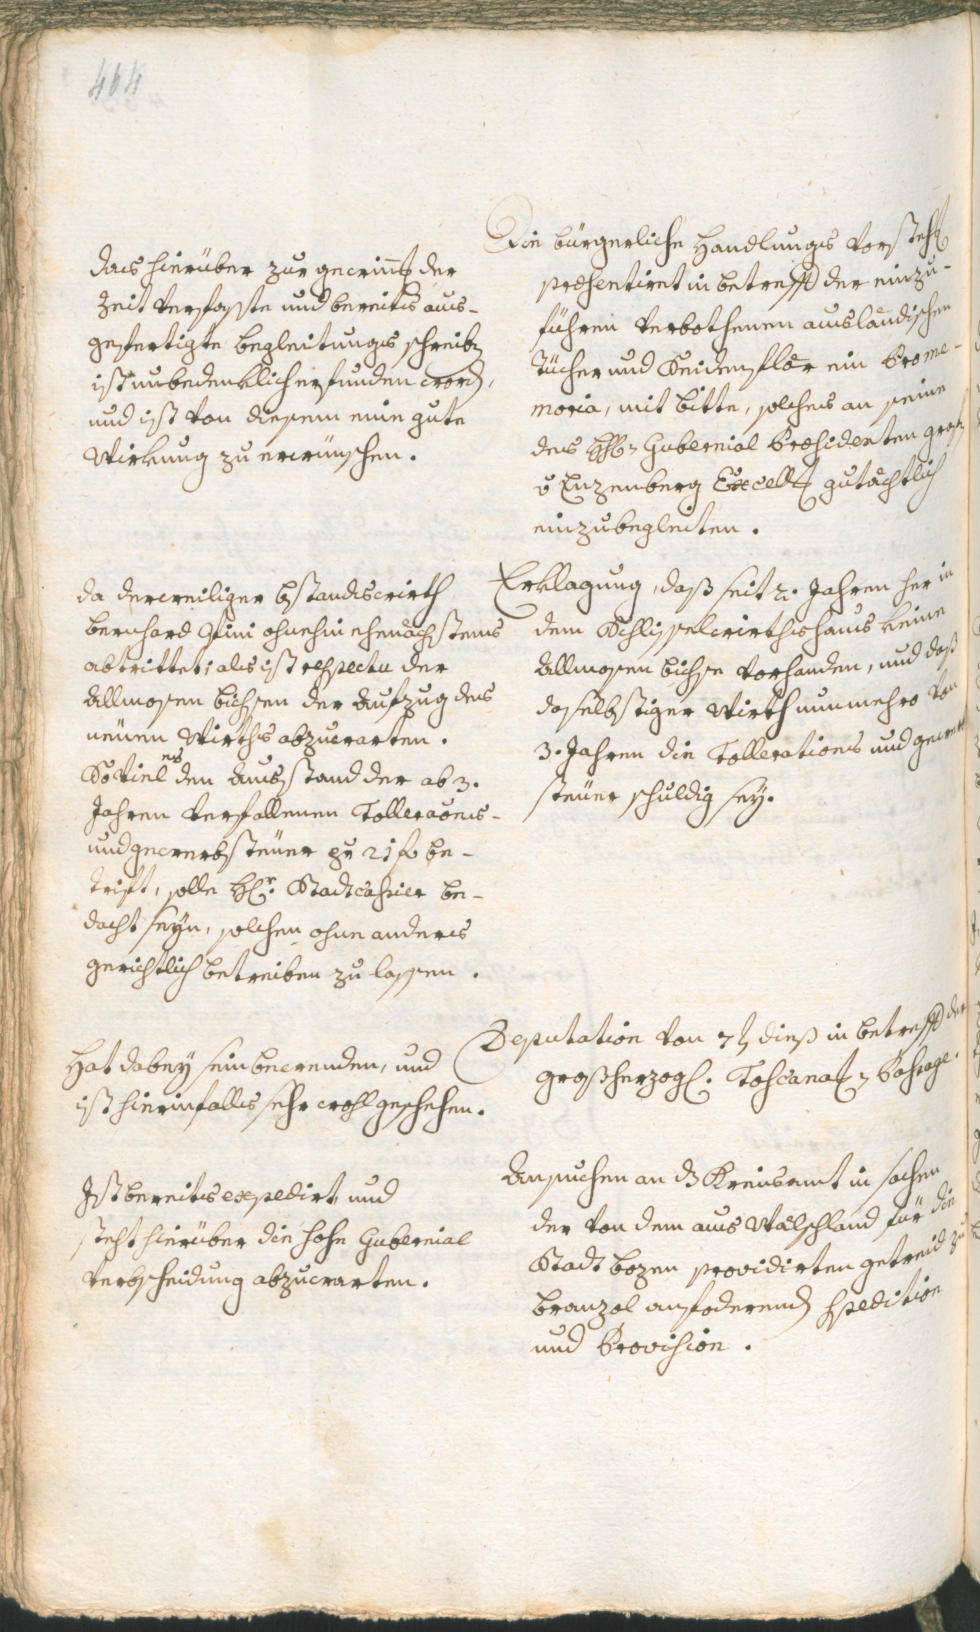 464
Die bürgerliche Handlungs Vorsteh
præsentiret in betreff der einzu-
führen Verbothenen ausländischen
Tücher und Seidenflor ein Prome-
moria, mit bitte, solches an seine
des H. Gubernial Præsidenten graf
v Enzenberg Excell. gutächtlich
einzubegleiten.
das hierüber zur gewinnt der
Zeit Verfasste und bereits aus-
gefertigte begleitungs schreiben
ist unbedenklich erfunden word,
und ist von diesem eine gute
Wirkung zu erwünschen.
Erklagung, daß seit 2. Jahren her in
dem Schlisselwirthshaus keine
Allmosen bichse Vorhanden, und daß
daselbstiger Wirth nunmehro Von
3. Jahren die Tollerations und gewerb
steüer schuldig sey.
da derweiliger bstandswirth
bernhard ohnehin ehenächstens
abtrittet; als ist respectu der
Allmosen bichsen der Aufzug des
neüen Wirths abzuwarten.
Sovielns den Ausstand der ab 3.
Jahren Verfallenen Tolleraons-
und gewerbsteüer p 21 f be-
trift, solle H. Stadtcassier be-
dacht seyn, solchen ohne anders
gerichtlich betreiben zu lassen.
Deputation Von 7t dieß in betreff der
großherzogl. Toscanat. Passage.
Hat dabey sein bewenden, und
ist hierinfalls sehr wohl geschehen.
Ansuchen an d Kreisamt in sachen
der Von dem aus Wälschland für die
Stadt bozen providirten getreid zu
branzol anfoderend Spedition
und Provision.
Ist bereits expedirt, und
steht hierüber die hohe Gubernial
Verbscheidung abzuwarten.